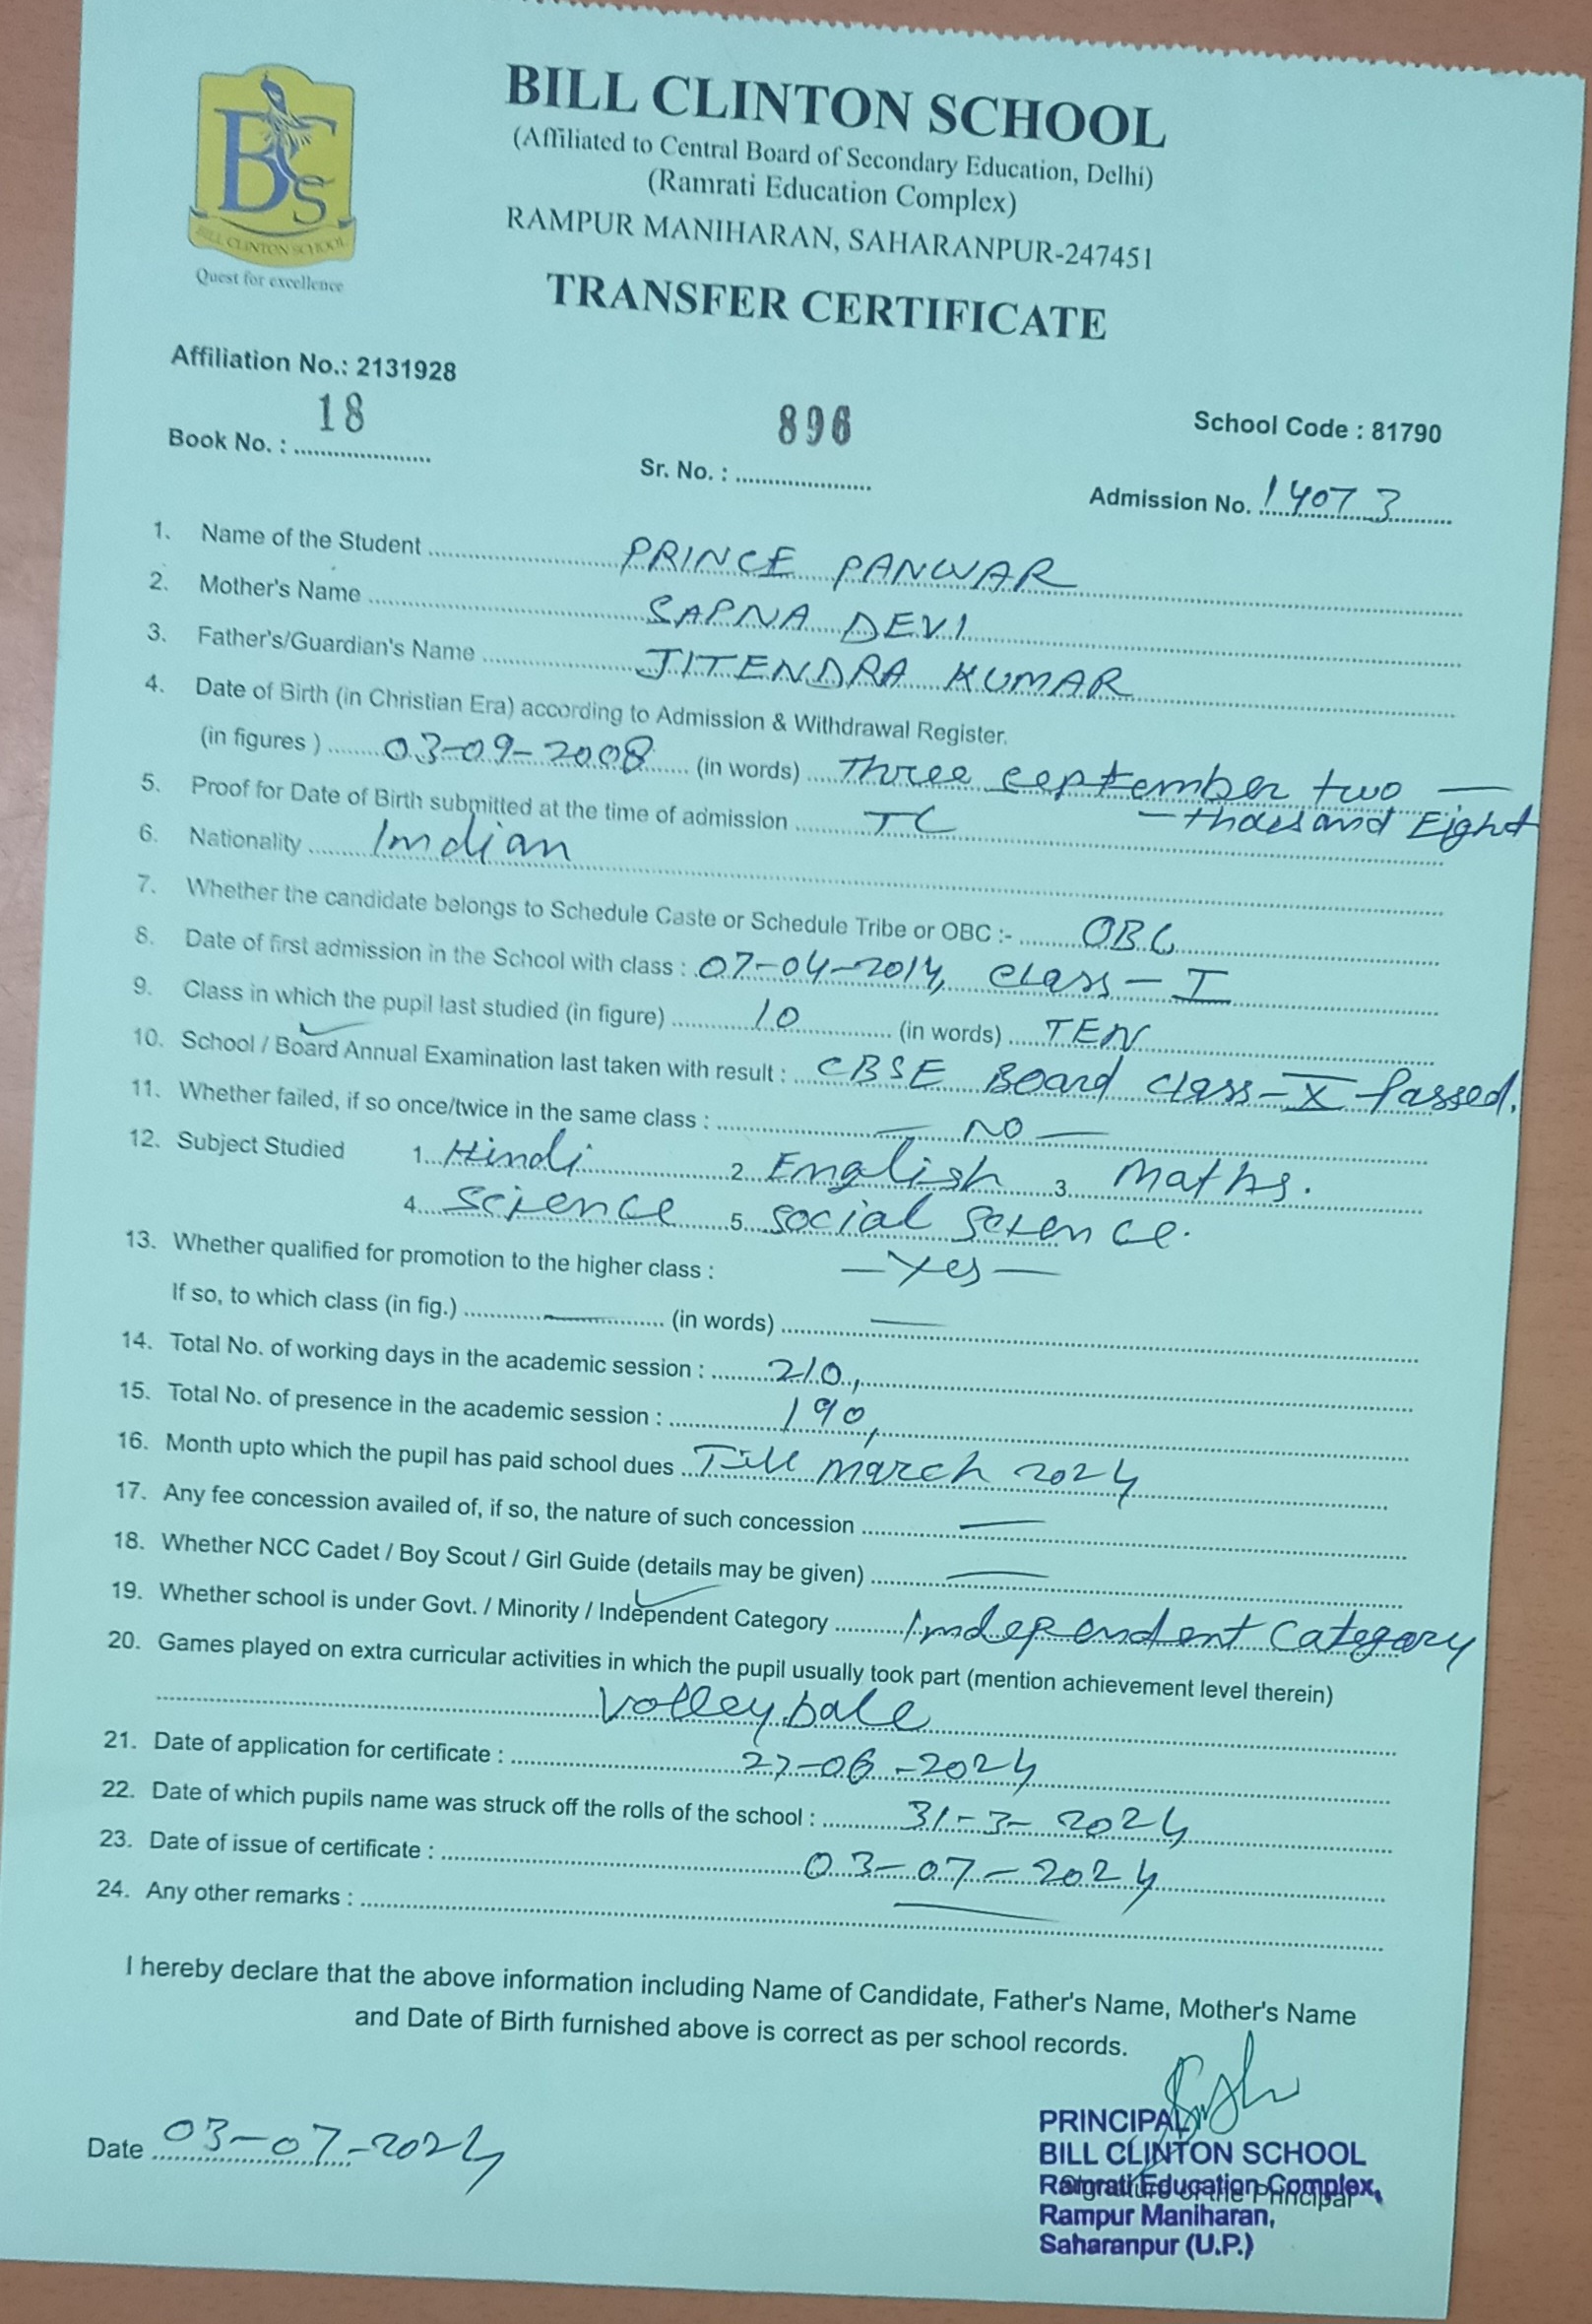 BCS
BILL CLINTON SCHOOL
Quest for excellence
BILL CLINTON SCHOOL
(Affiliated to Central Board of Secondary Education, Delhi)
(Ramrati Education Complex)
RAMPUR MANIHARAN, SAHARANPUR-247451
TRANSFER CERTIFICATE
Affiliation No.: 2131928
School Code : 81790
Book No. : 18
Sr. No. : 896
Admission No. 14073
1. Name of the Student PRINCE PANWAR
2. Mother's Name SAPNA DEVI
3. Father's/Guardian's Name JITENDRA KUMAR
4. Date of Birth (in Christian Era) according to Admission & Withdrawal Register.
(in figures ) 03-09-2008 (in words) Three eeptember two —
— thousand Eight
5. Proof for Date of Birth submitted at the time of admission TC
6. Nationality Indian
7. Whether the candidate belongs to Schedule Caste or Schedule Tribe or OBC :- OBC
8. Date of first admission in the School with class : 07-04-2014, class - I
9. Class in which the pupil last studied (in figure) 10 (in words) TEN
10. School / Board Annual Examination last taken with result : CBSE Board class - X Passed.
11. Whether failed, if so once/twice in the same class : — NO —
12. Subject Studied 1. Hindi 2. English 3. Maths.
4. Science 5. social science.
13. Whether qualified for promotion to the higher class : — Yes —
If so, to which class (in fig.) — (in words) —
14. Total No. of working days in the academic session : 210,
15. Total No. of presence in the academic session : 190,
16. Month upto which the pupil has paid school dues Till march 2024
17. Any fee concession availed of, if so, the nature of such concession —
18. Whether NCC Cadet / Boy Scout / Girl Guide (details may be given) —
19. Whether school is under Govt. / Minority / Independent Category Independent Category
20. Games played on extra curricular activities in which the pupil usually took part (mention achievement level therein)
Volleyball
21. Date of application for certificate : 27-06-2024
22. Date of which pupils name was struck off the rolls of the school : 31-3-2024
23. Date of issue of certificate : 03-07-2024
24. Any other remarks : —
I hereby declare that the above information including Name of Candidate, Father's Name, Mother's Name
and Date of Birth furnished above is correct as per school records.
Date 03-07-2024
PRINCIPAL
BILL CLINTON SCHOOL
Ramrati Education Complex,
Signature of the Principal
Rampur Maniharan,
Saharanpur (U.P.)